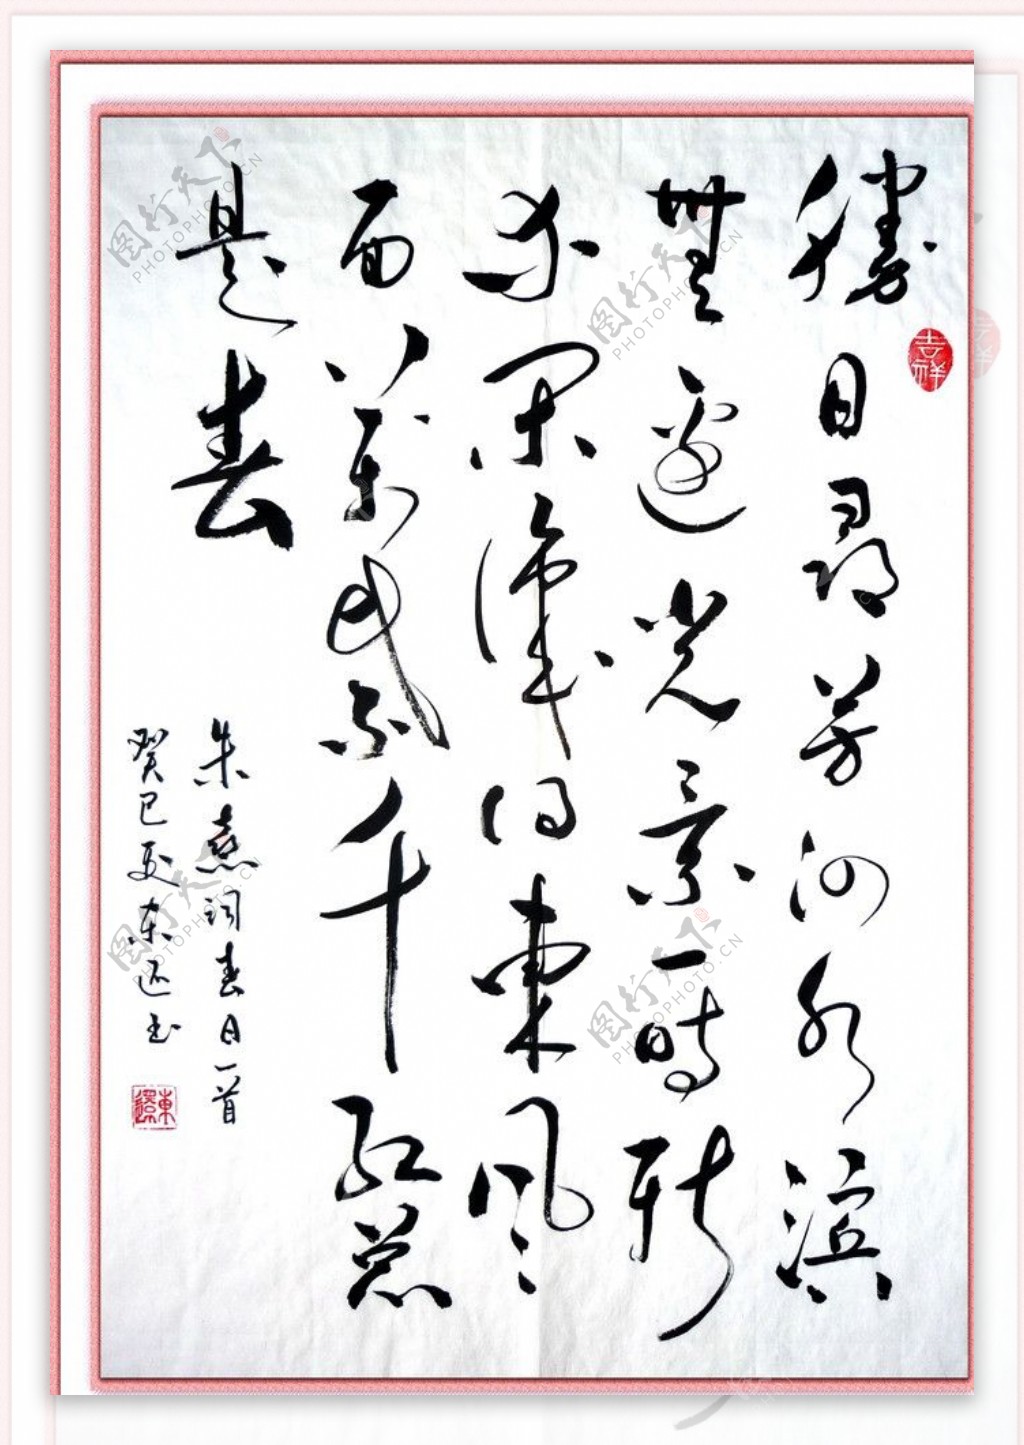 勝日尋芳泗水滨
無邊光景一時新
等闲識得東風
面萬紫千红总
是春
朱熹詞春日一首
癸巳夏東书
吉祥
图行天下 PHOTOPHOTO.CN
图行天下 PHOTOPHOTO.CN
图行天下 PHOTOPHOTO.CN
图行天下 PHOTOPHOTO.CN